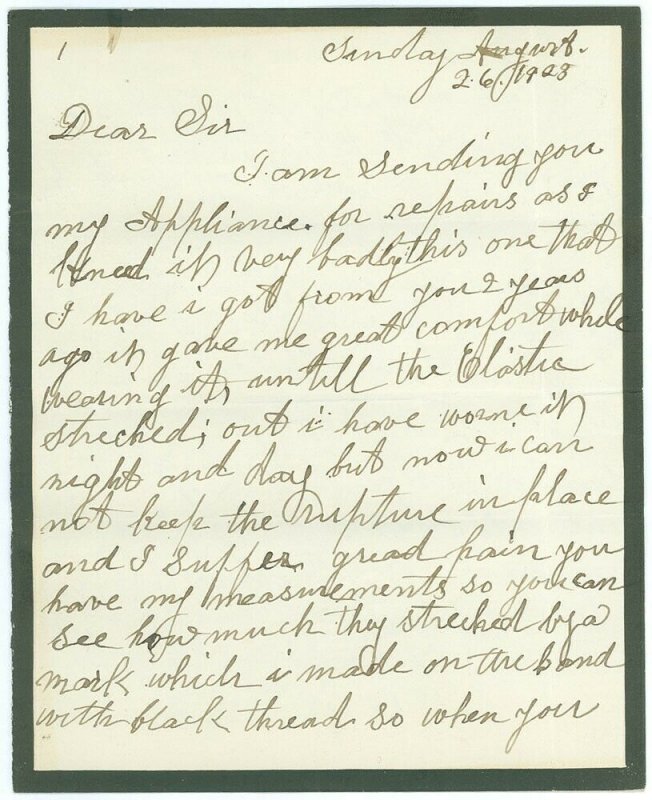 1
Sunday August.
26, 1928
Dear Sir
I am sending you
my Appliance. for repairs as I
kneed it very badly this one that
I have i got from you 2 years
ago it gave me great comfort while
wearing it, untill the Elastic
streched; out i have worne it
night and day but now i can
not keep the rupture in place
and I suffer gread pain you
have my measurements so you can
see how much they streched by a
mark which i made on the band
with black thread so when you